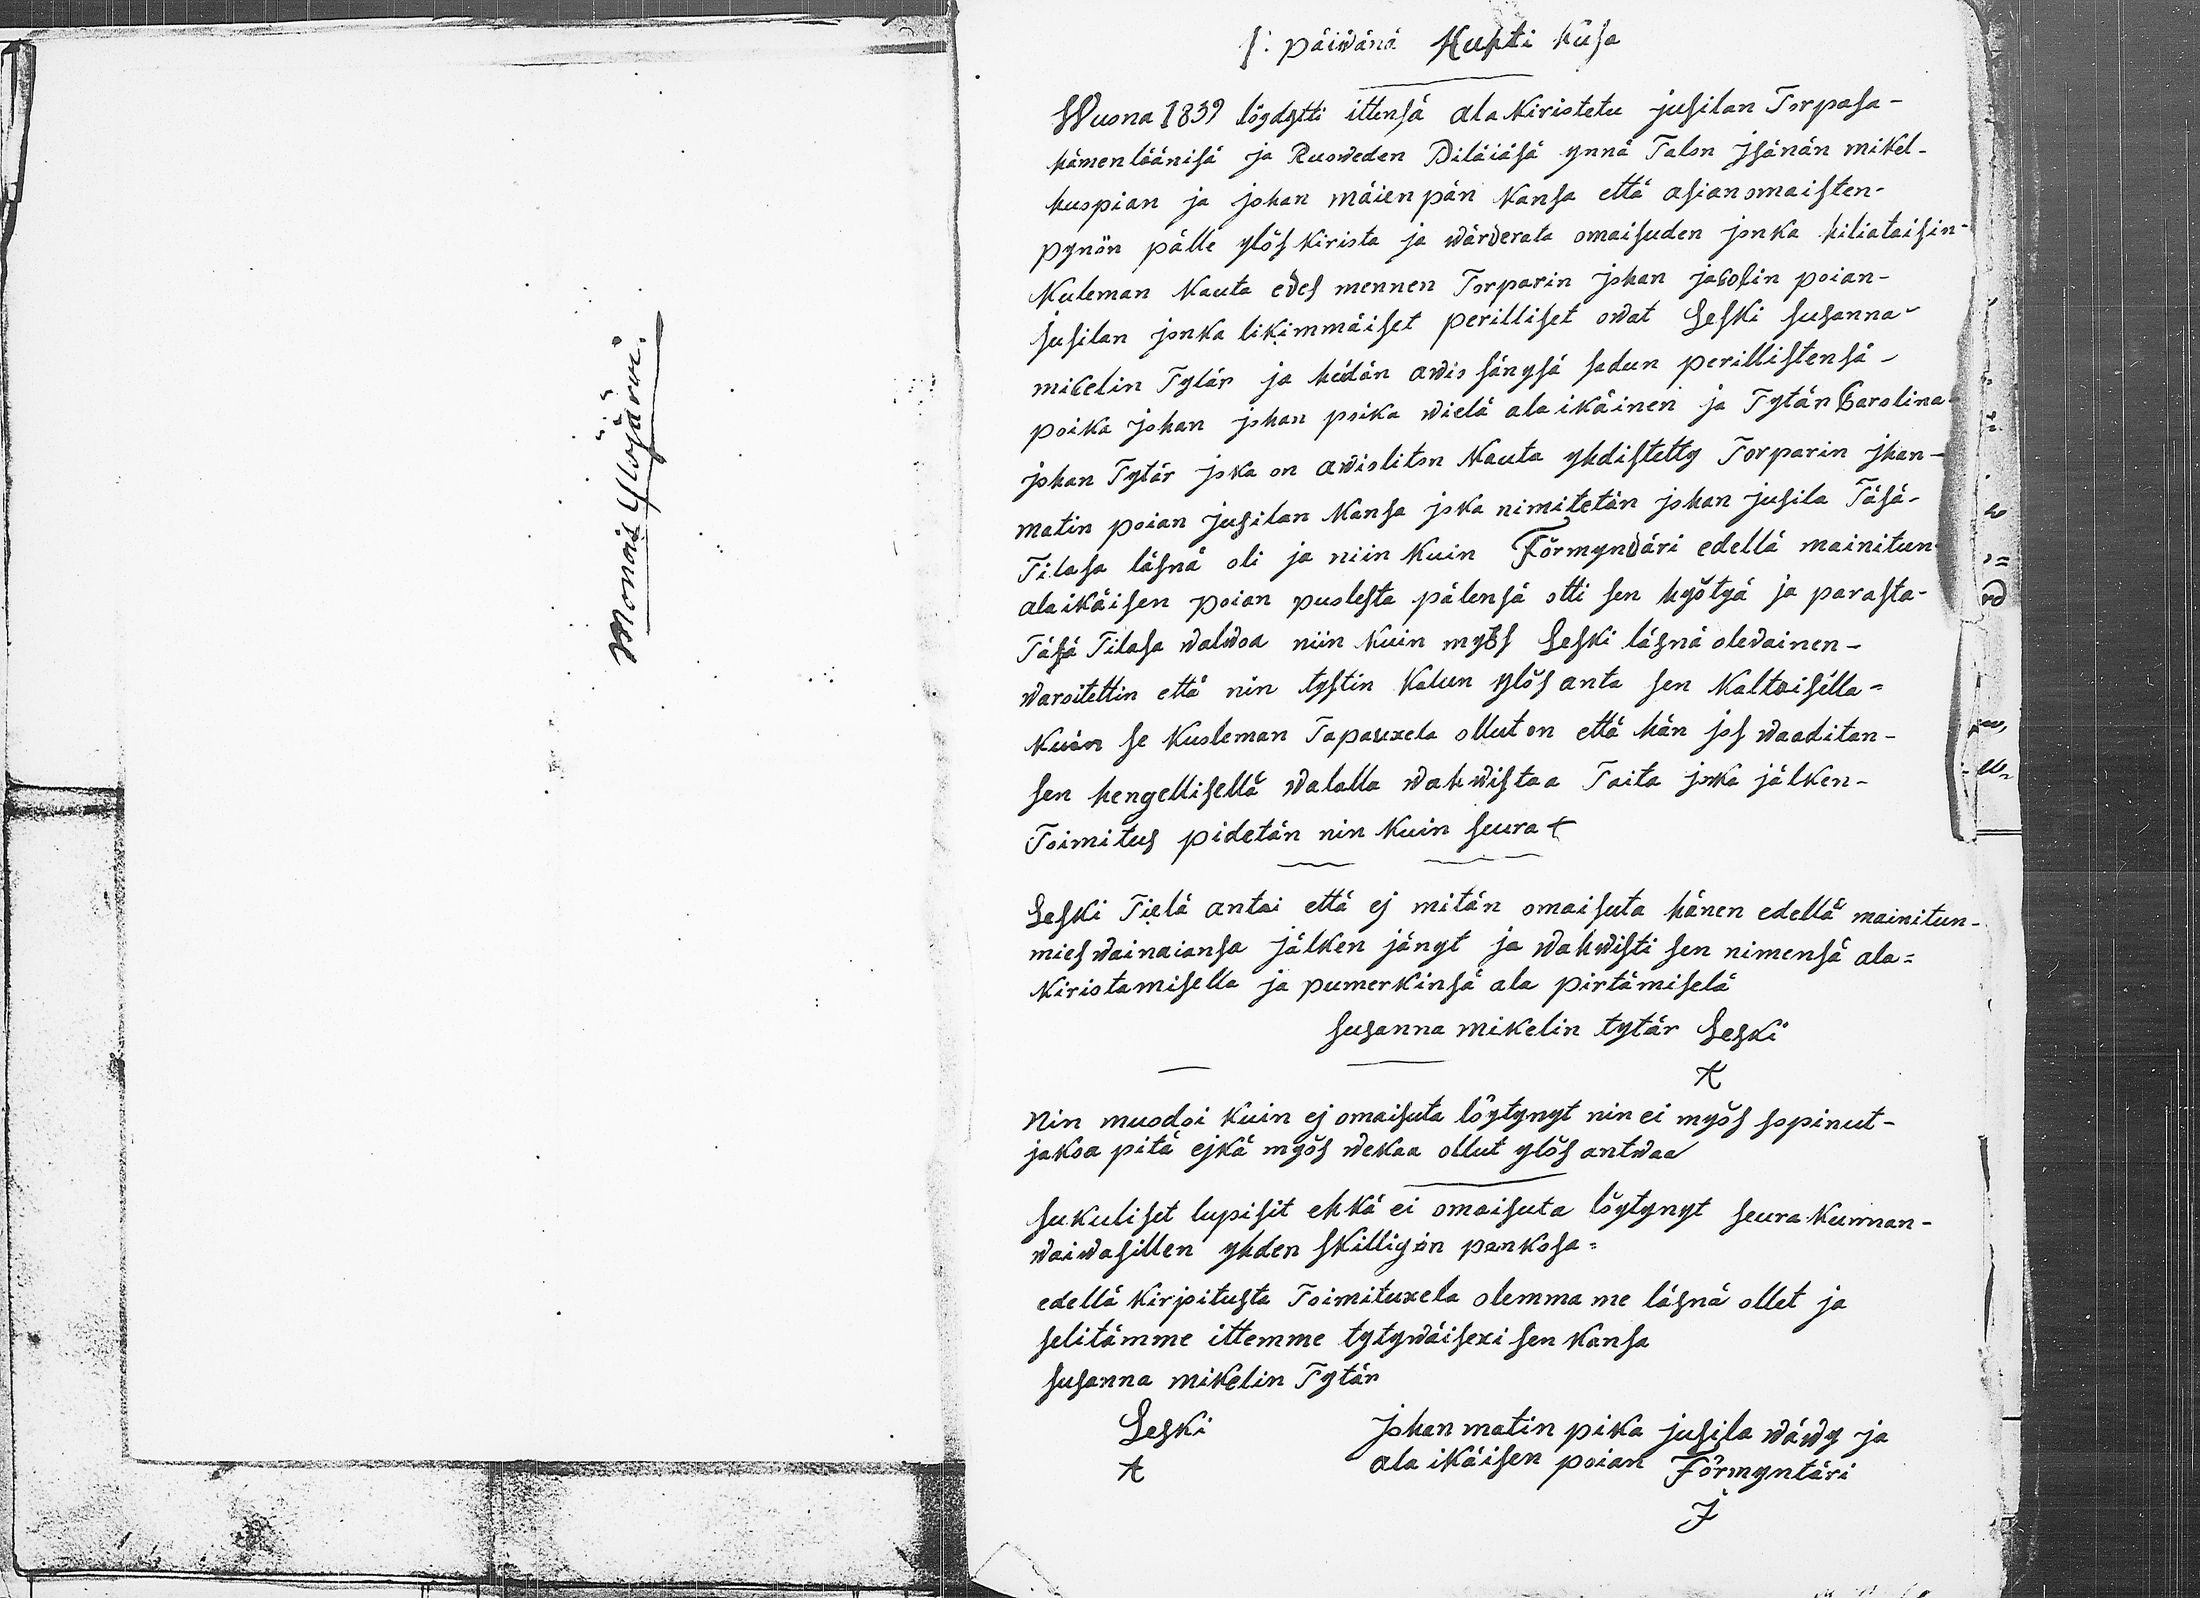 Monois Ylöjärvi.
1: päiwänä Huhti kusa
Wuona 1839 löydytti ittensä ala Kiristetu jusilan Torpasa-
hämenläänisä ja Ruoweden Pitäiäsä ynnä Talon jsänän mikel-
kuspian ja johan mäienpän Kansa että asianomaisten-
pynön pälle ylös Kirista ja wärderata omaisuden jonka hiliataisin-
Kuleman Kauta edes mennen Torparin johan jacolin poian-
jusilan jonka likimmäiset perilliset owat Leski susanna-
mikelin Tytär ja hädän awio sängysä sadun perillistensä-
poika johan johan poika wielä ala ikäinen ja Tytän Carolina-
johan Tytär joka on awioliton Kauta yhdistetty Torparin jhan-
matin poian jusilan Kansa joka nimitetän johan jusila Täsä-
Tilasa läsnä oli ja niin Kuin Förmyndäri edellä mainitun-
alaikäisen poian puolesta pälensä otti sen hyötyä ja parasta-
Täsä Tilasa walwoa niin Kuin myös Leski läsnä olewainen-
waroitettin että nin tystin Kalun ylös anta sen Kaltaisella=
Kuin se Kuoleman Tapauxela ollut on että hän jos waaditan-
sen hengellisellä walalla wahwistaa Taita joka jälken-
Toimitus pidetän nin Kuin seurat
Leski Tielä antai että ej mitän omaisuta hänen edellä mainitun-
mies wainaiansa jälken jänyt ja wahwisti sen nimensä ala=
Kiristamisella ja pumerkinsä ala pirtämiselä
susanna mikelin tytär Leski
Nin muodoi Kuin ej omaisuta löytynyt nin ei myös sopinut-
jakoa pitä ejkä myös wekaa ollut ylös antwaa
sukuliset lupisit ehkä ei omaisuta löytynyt seura Kunnan-
waiwasillen yhden skilligin pankosa=
edellä Kirjoitusta Toimituxela olemma me läsnä ollet ja
selitämme ittemme tytywäisexi sen Kansa
susanna mikelin Tytär
Leski
johan matin pika jusila wäwy ja
ala ikäisen poian Förmyntäri
J